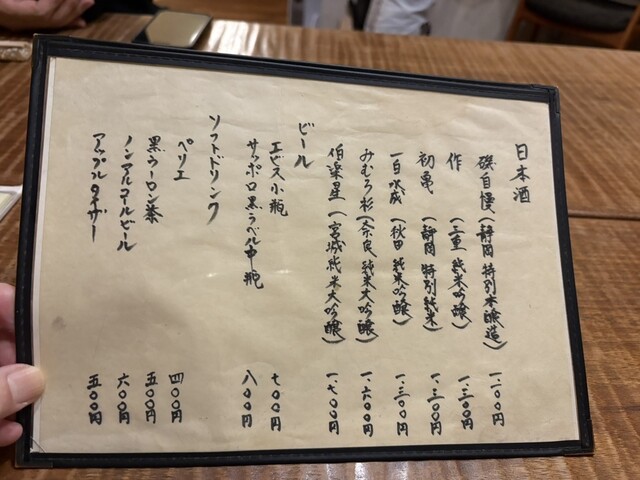 日本酒
磯自慢(静岡 特別本醸造) 一、一〇〇円
作 (三重 純米吟醸) 一、二〇〇円
初亀 (静岡 特別純米) 一、二〇〇円
一白水成 (秋田 純米吟醸) 一、三〇〇円
みむろ杉(奈良 純米大吟醸) 一、六〇〇円
伯楽星 (宮城 純米大吟醸) 一、七〇〇円
ビール
エビス小瓶 七〇〇円
サッポロ黒ラベル中瓶 八〇〇円
ソフトドリンク
ペリエ 四〇〇円
黒ウーロン茶 五〇〇円
ノンアルコールビール 六〇〇円
アップルタイザー 五〇〇円